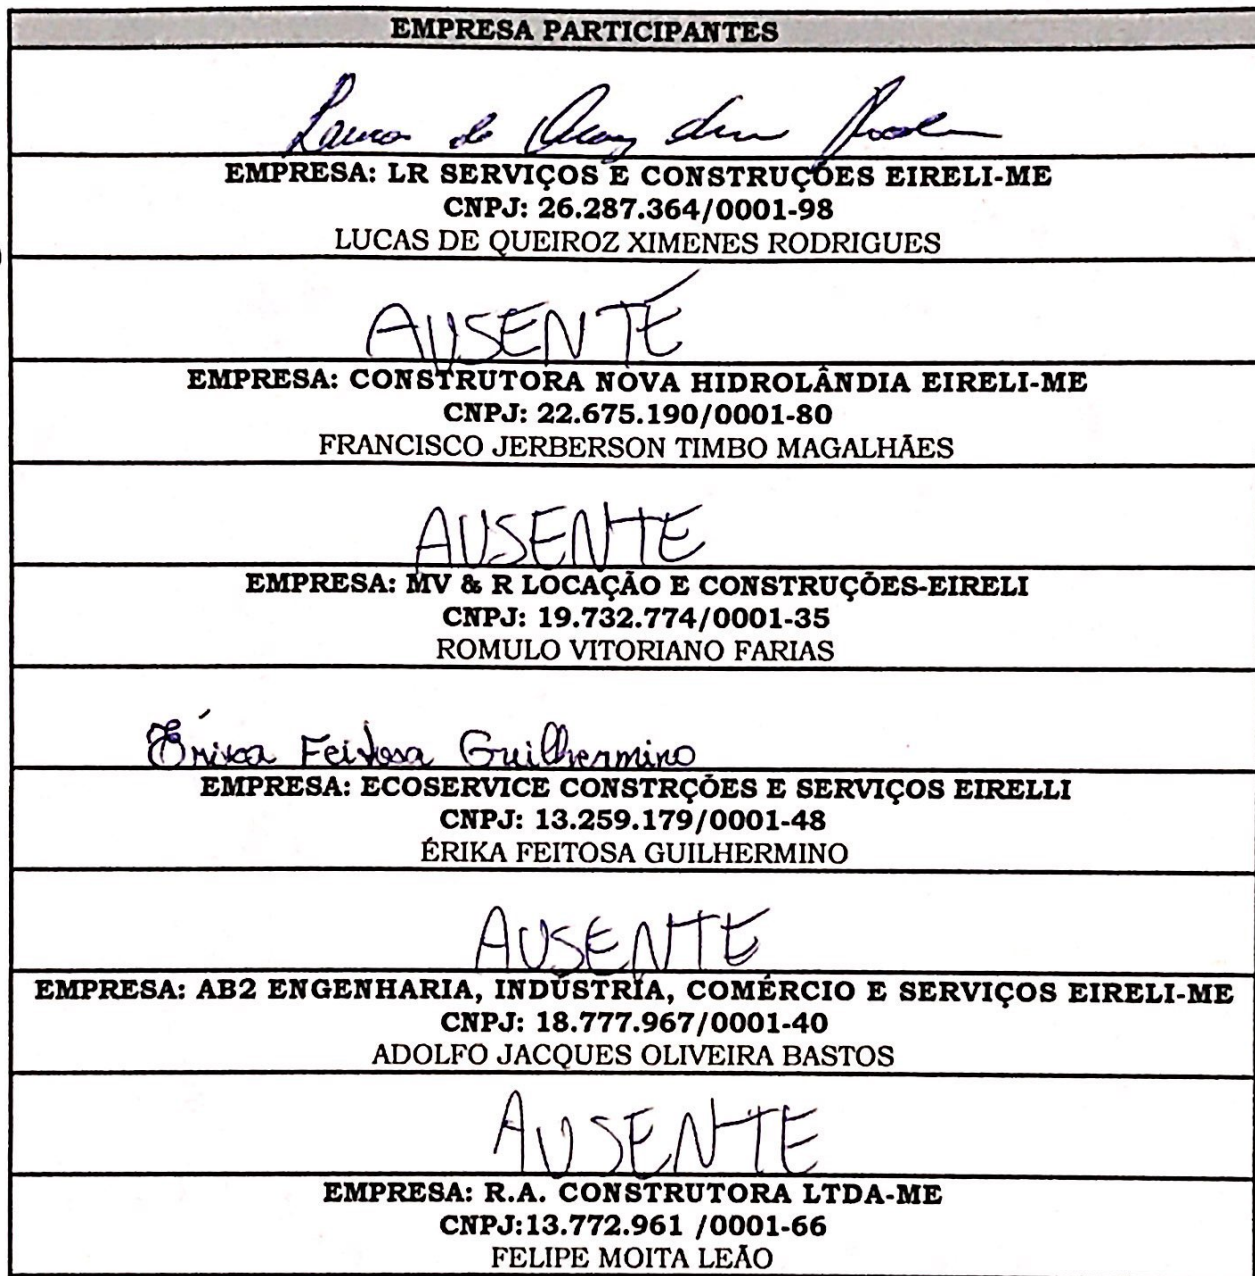 EMPRESA PARTICIPANTES
de
EMPRESA: LR SERVIÇOS E CONSTRUÇÕES EIRELI-ME
CNPJ: 26.287.364/0001-98
LUCAS DE QUEIROZ XIMENES RODRIGUES
AUSENTE
EMPRESA: CONSTRUTORA NOVA HIDROLÂNDIA EIRELI-ME
CNPJ: 22.675.190/0001-80
FRANCISCO JERBERSON TIMBO MAGALHÃES
AUSENTE
EMPRESA: MV & R LOCAÇÃO E CONSTRUÇÕES-EIRELI
CNPJ: 19.732.774/0001-35
ROMULO VITORIANO FARIAS
Érika Feitosa Guilhermino
EMPRESA: ECOSERVICE CONSTRÇÕES E SERVIÇOS EIRELLI
CNPJ: 13.259.179/0001-48
ÉRIKA FEITOSA GUILHERMINO
AUSENTE
EMPRESA: AB2 ENGENHARIA, INDÚSTRIA, COMÉRCIO E SERVIÇOS EIRELI-ME
CNPJ: 18.777.967/0001-40
ADOLFO JACQUES OLIVEIRA BASTOS
AUSENTE
EMPRESA: R.A. CONSTRUTORA LTDA-ME
CNPJ:13.772.961 /0001-66
FELIPE MOITA LEÃO